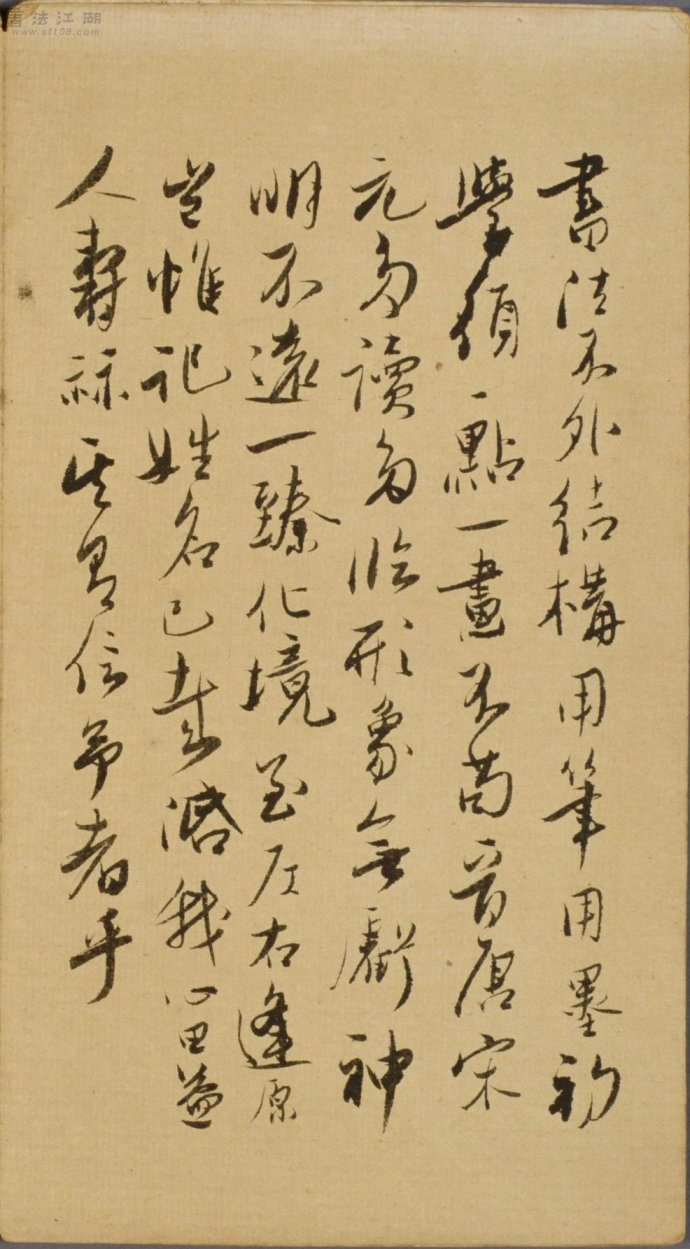 書法江湖
www.sf108.com
書法不外結構用筆用墨初
學須一點一畫不苟晉唐宋
元勿讀勿臨形象無虧神
明不遠一臻化境名左右逢原
豈惟記姓名已哉澹我心田益
人壽祿其有信予者乎